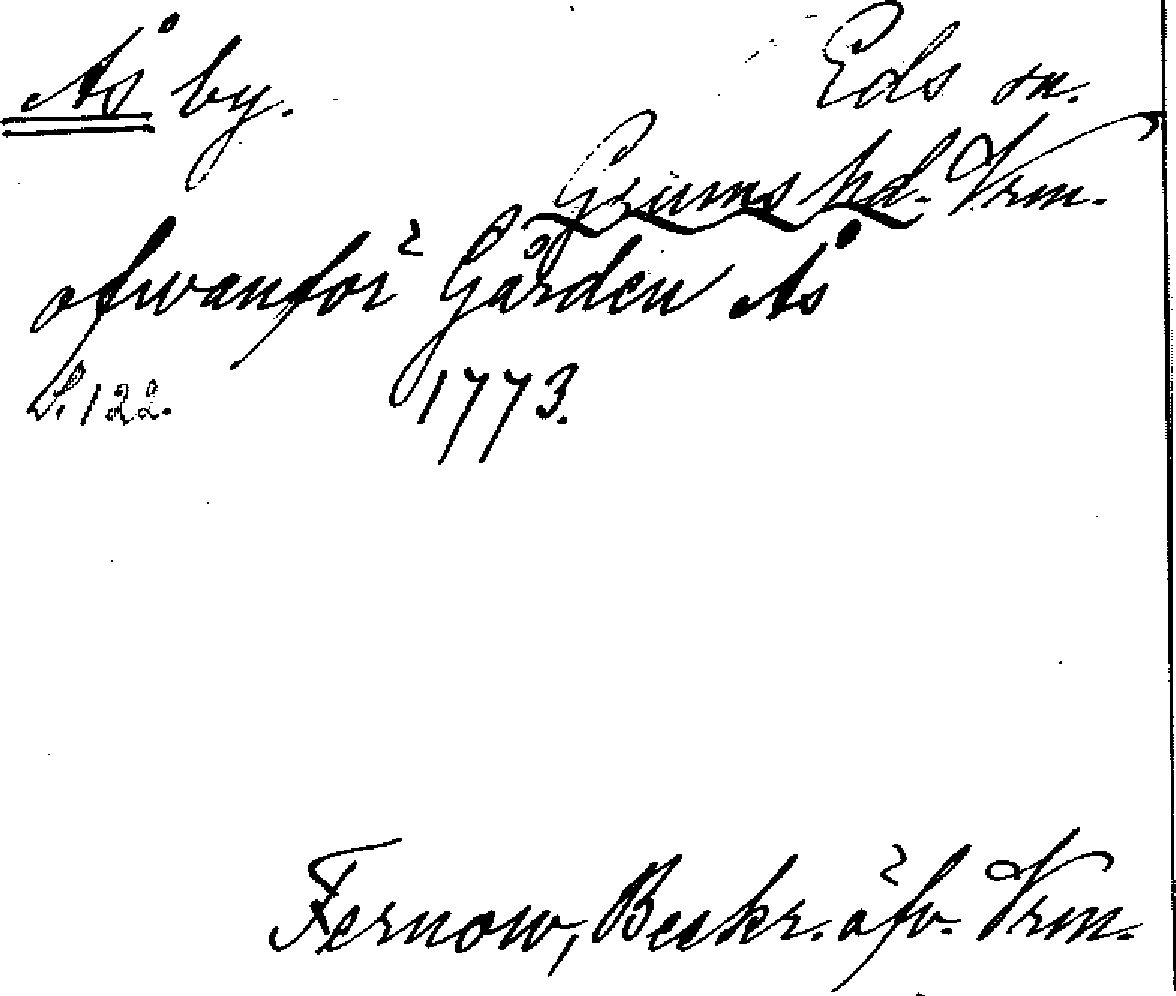 Ås by.
Eds sn.
Grums hd. Vrm.
ofwanför Gården Ås
S. 122. 1773.
Fernow, Beskr. öfv. Vrm.